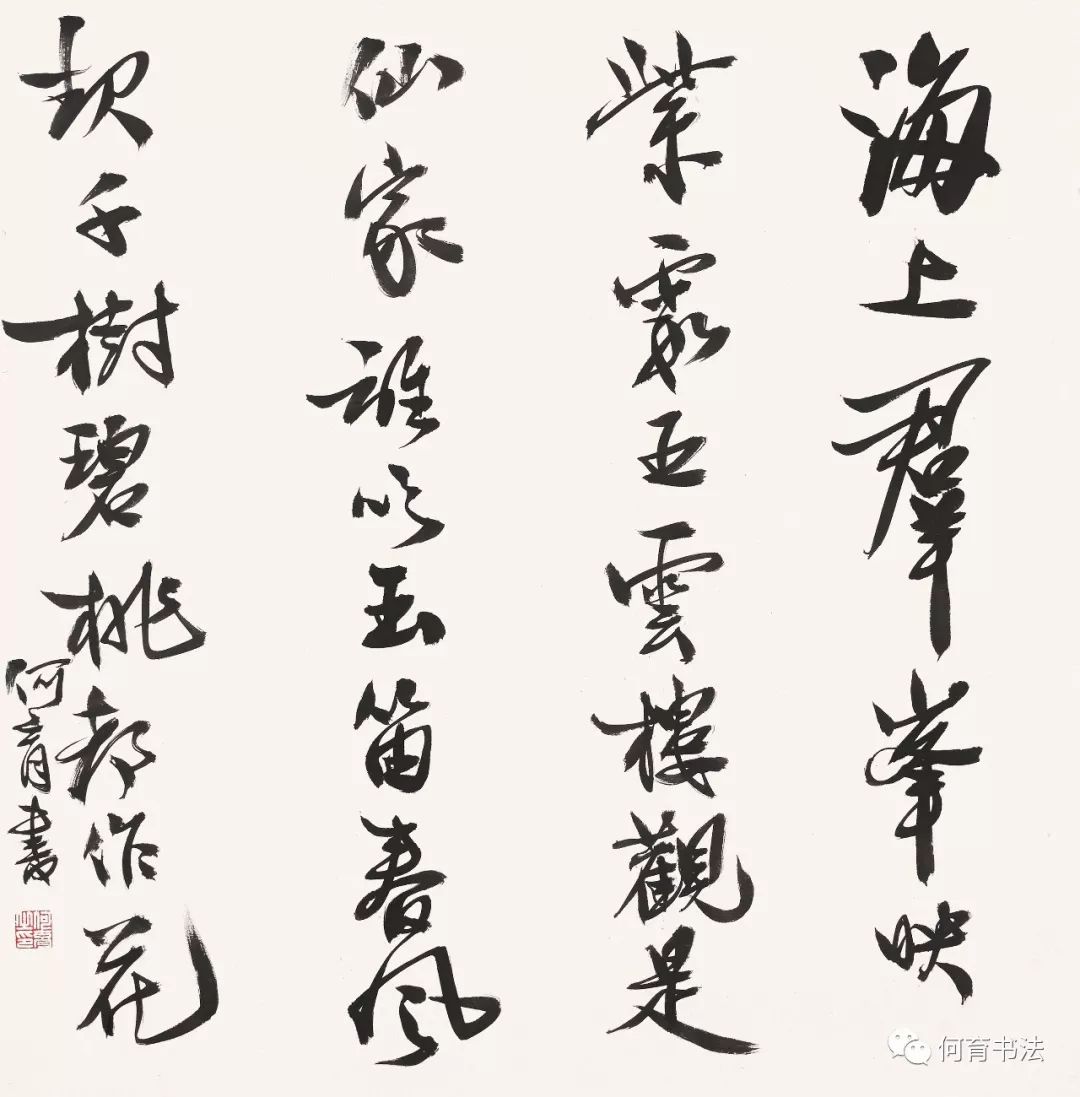 海上羣峯映
紫霞五雲樓觀是
仙家誰吹玉笛春風
起千樹碧桃都作花
何育書
何育之印
何育书法